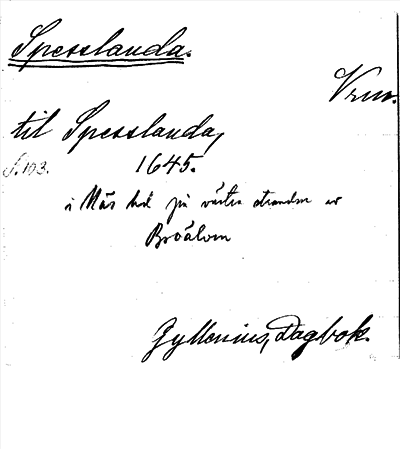 Spesslanda.
Vrm.
til Spesslanda,
s. 103.
1645.
i Näs hd på västra stranden av
Broälven
Gyllenius, Dagbok.